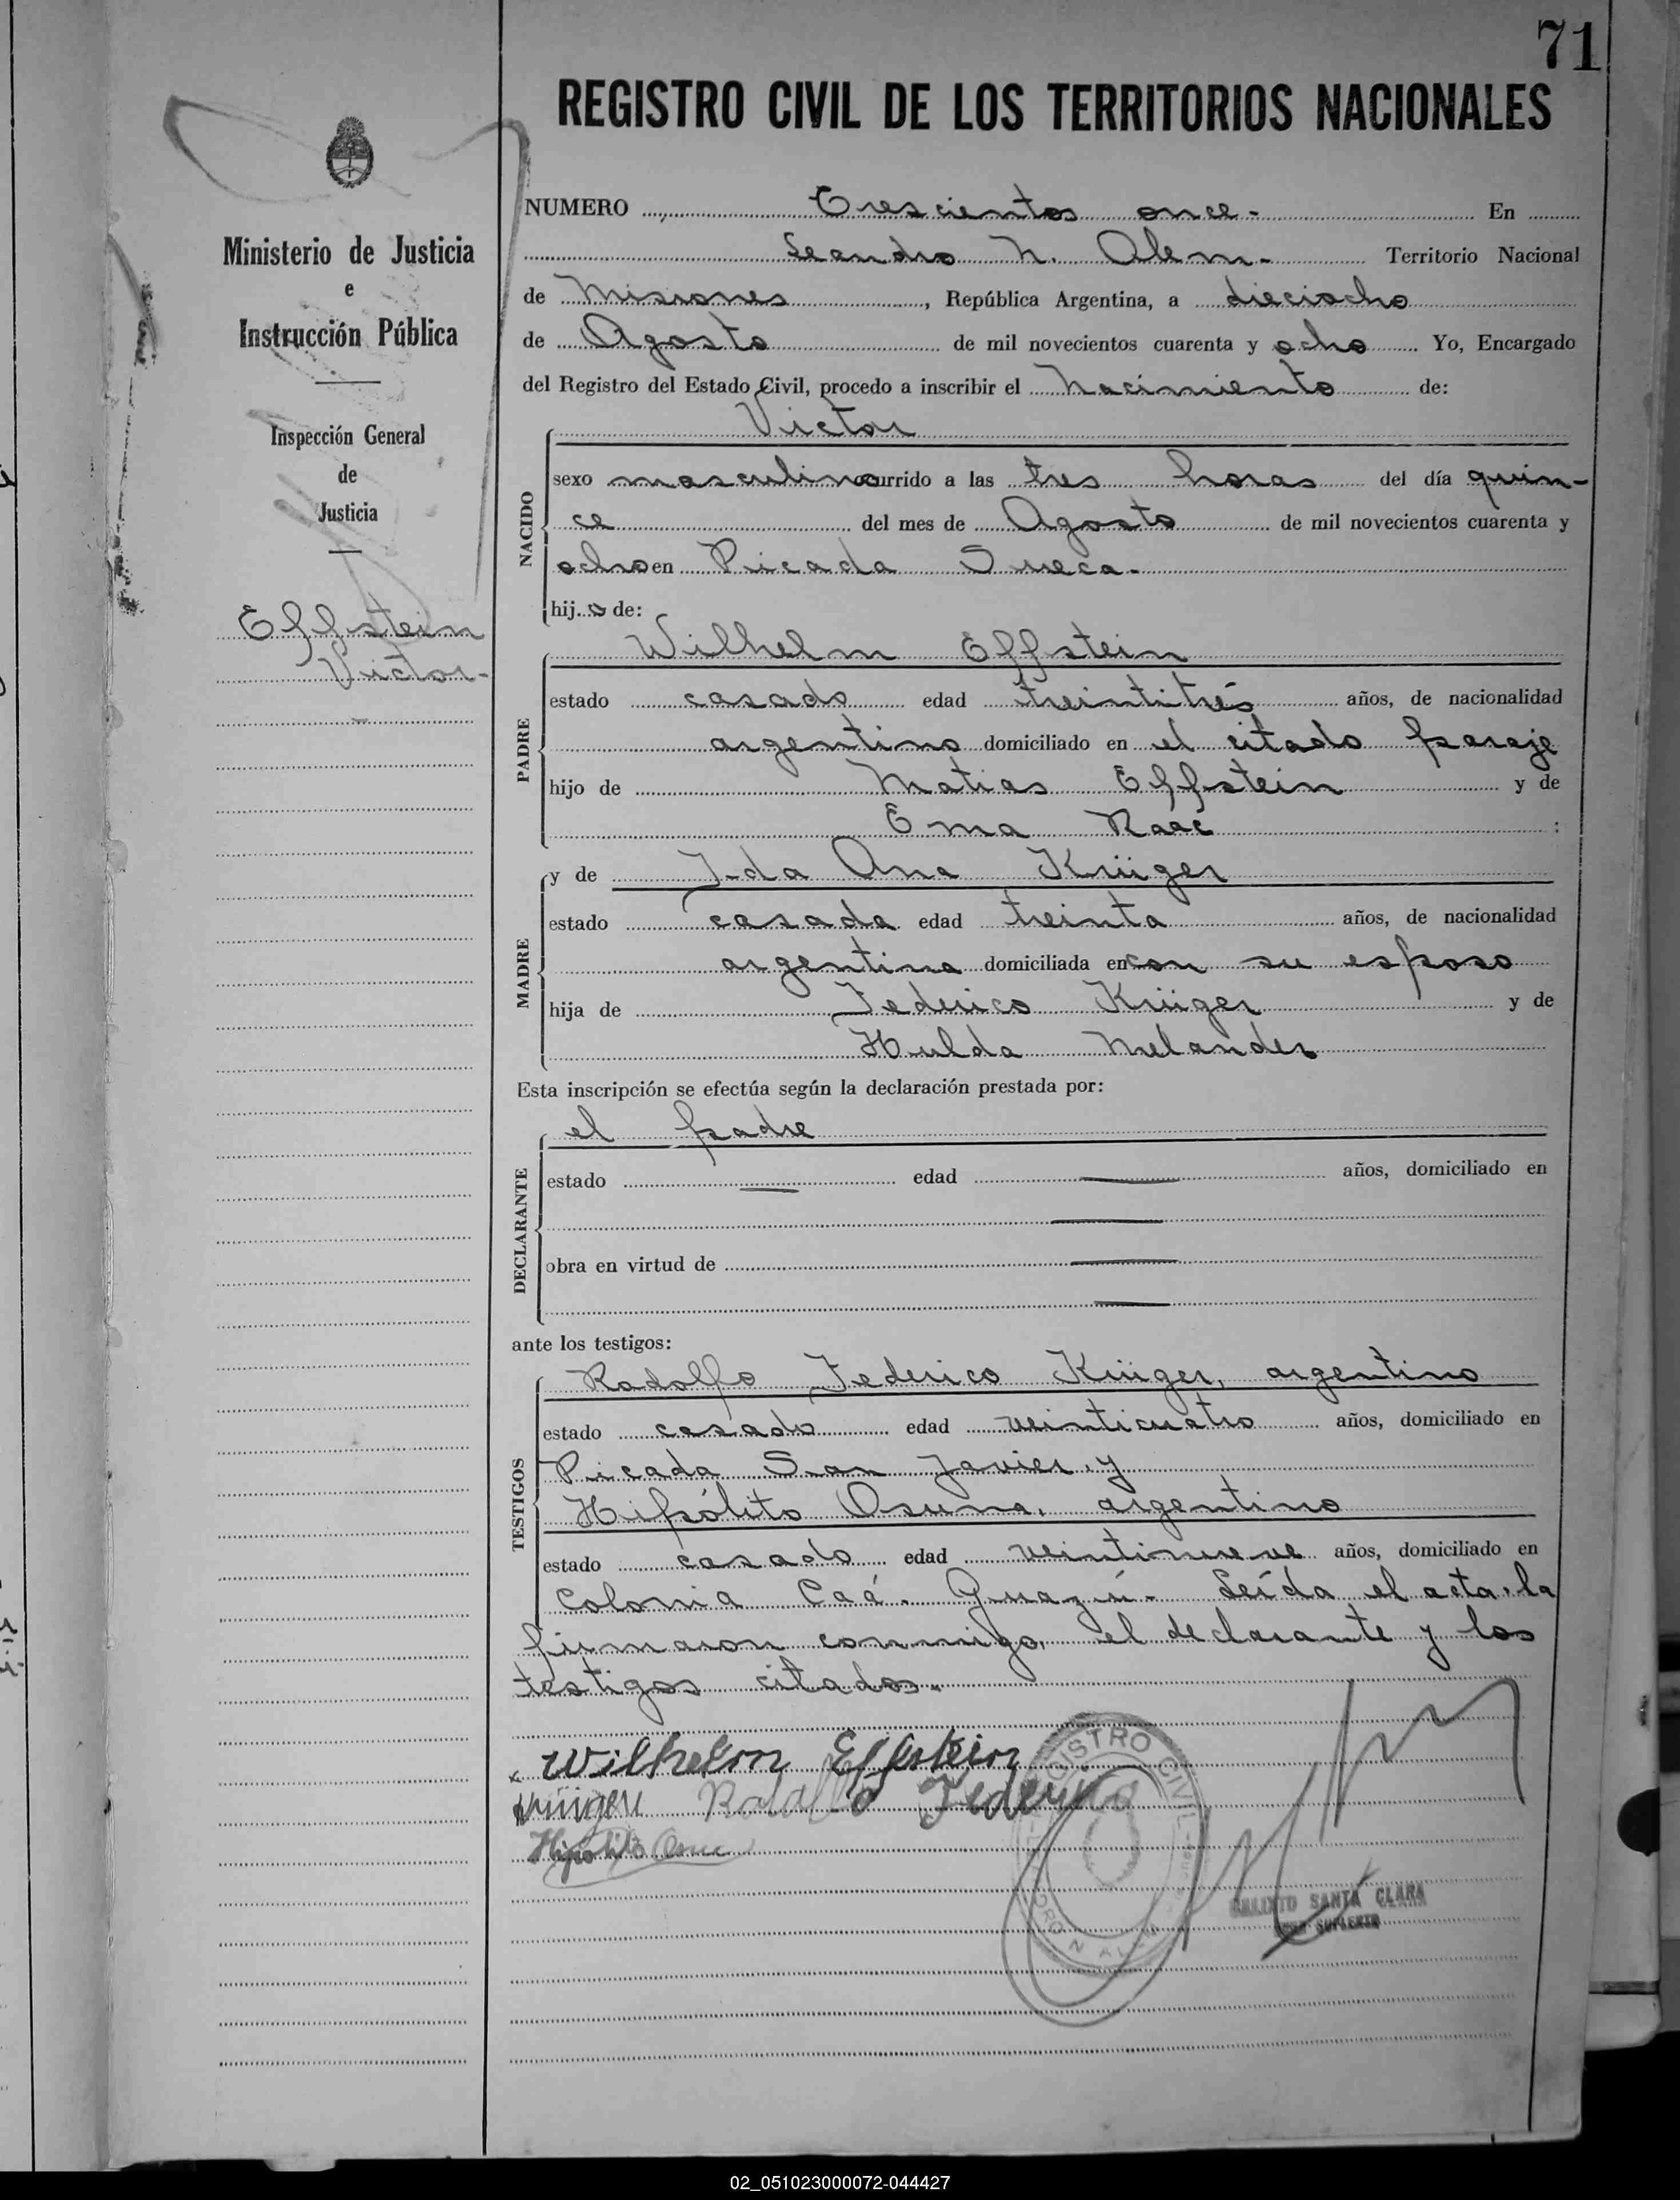 71
REGISTRO CIVIL DE LOS TERRITORIOS NACIONALES
Ministerio de Justicia
e
Instrucción Pública
Inspección General
de
Justicia
Effstein
Victor-
NUMERO Trescientos once- En
Leandro N. Alem- Territorio Nacional
de Misiones, República Argentina, a dieciocho
de Agosto de mil novecientos cuarenta y ocho Yo, Encargado
del Registro del Estado Civil, procedo a inscribir el Nacimiento de:
Victor
NACIDO
sexo masculino ocurrido a las tres horas del día quin-
ce del mes de Agosto de mil novecientos cuarenta y
ocho en Picada Sueca-
hij.o de:
Wilhelm Effstein
PADRE
estado casado edad treintitrés años, de nacionalidad
argentino domiciliado en el citado paraje
hijo de Matias Effstein y de
Ema :
y de Ida Ana Krüger
MADRE
estado casada edad treinta años, de nacionalidad
argentina domiciliada en con su esposo
hija de Federico Krüger y de
Hulda Melander
Esta inscripción se efectúa según la declaración prestada por:
el padre
DECLARANTE
estado — edad — años, domiciliado en
—
obra en virtud de —
—
ante los testigos:
Rodolfo Federico Krüger, argentino
TESTIGOS
estado casado edad veinticuatro años, domiciliado en
Picada San Javier, y
Hipólito Osuna, argentino
estado casado edad veintinueve años, domiciliado en
Colonia Caá-Guazú- Leída el acta, la
firmaron conmigo, el declarante y los
testigos citados.-
Wilhelm Effstein
Krüger Rodolfo Federico
Hipólito
REGISTRO CIVIL
CALIXTO SANTA CLARA
SUPLENTE
02_051023000072-044427